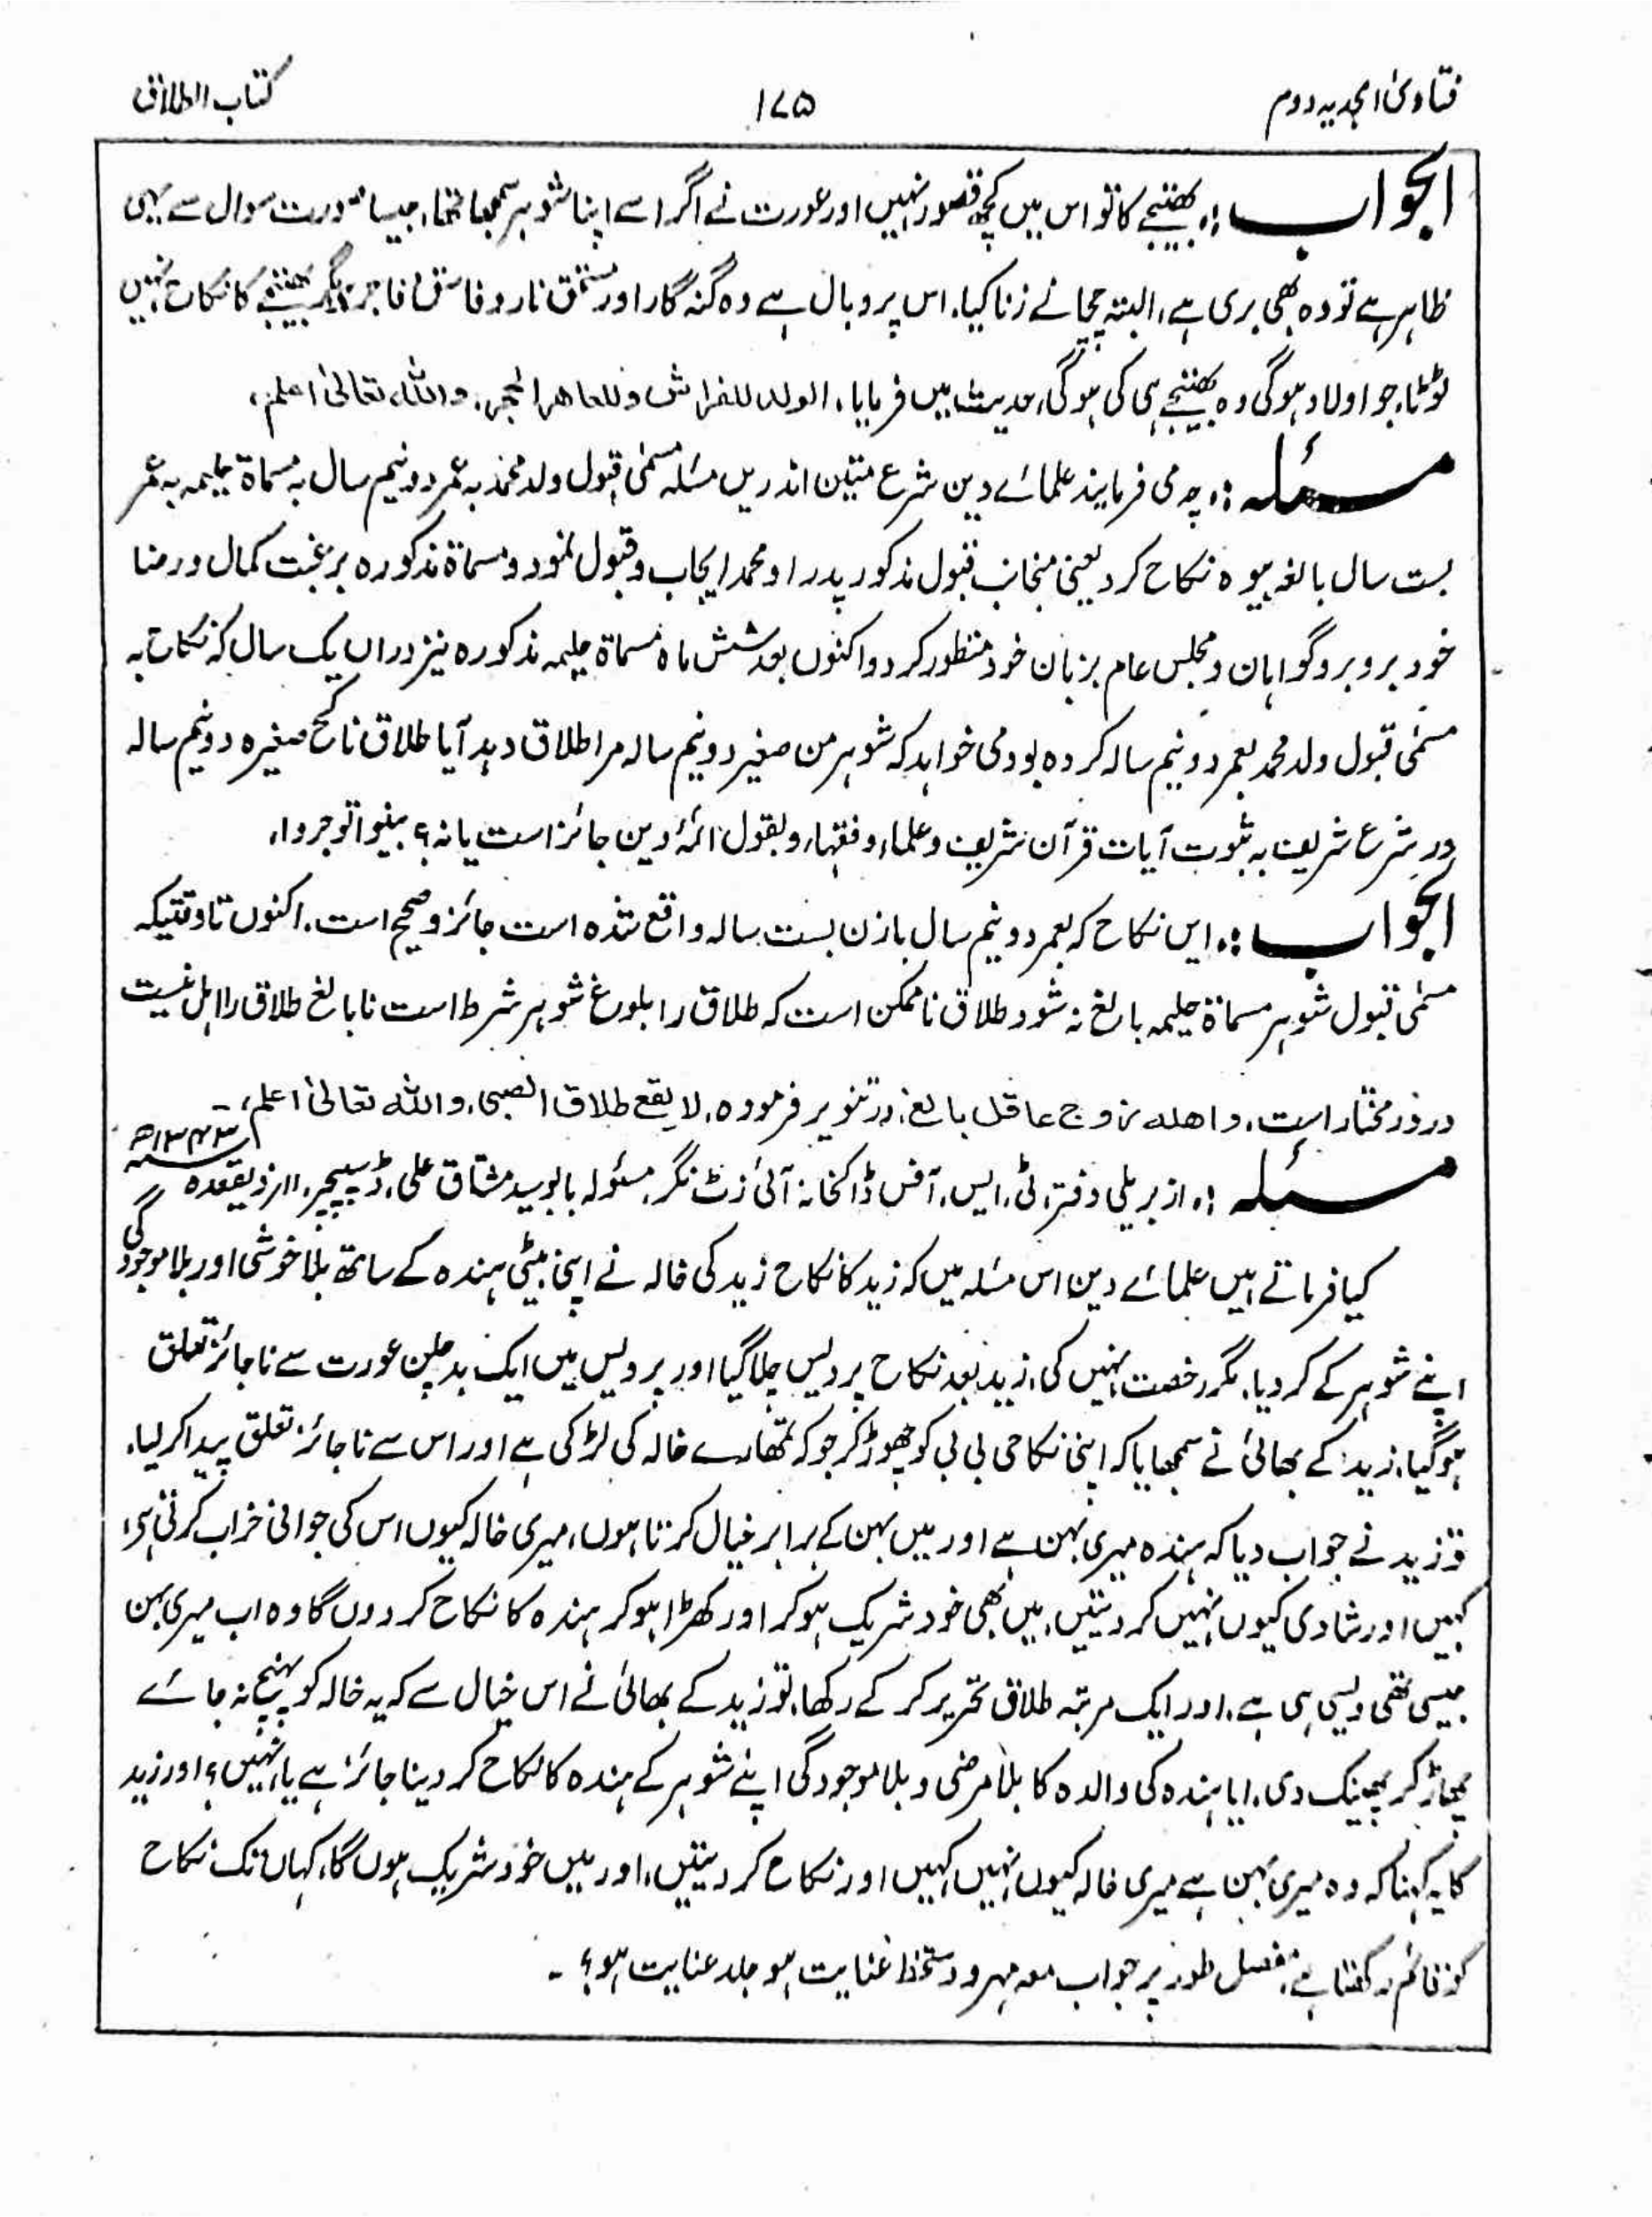 فتاویٰ امجدیہ دوم
۱۷۵
کتاب الطلاق
الجواب :۔ بھتیجے کا تو اس میں کچھ قصور نہیں اور عورت نے اگر اسے اپنا شوہر سمجھا تھا، جیسا صورت سوال سے یہی
ظاہر ہے تو وہ بھی بری ہے، البتہ چچا نے زنا کیا، اس پر وبال ہے وہ گنہ گار اور مستحق نار و فاسق فاجر مگر بھتیجے کا نکاح نہیں
ٹوٹتا، جو اولاد ہوگی وہ بھتیجے ہی کی ہوگی، حدیث میں فرمایا، الولد للفراش وللعاهر الحجر، واللہ تعالیٰ اعلم،
مسئلہ :۔ چہ می فرمایند علمائے دین شرع متین اندریں مسئلہ مسمٰی قبول ولد محمد بہ عمر دو نیم سال بہ مسماۃ حلیمہ بہ عمر
بست سال بالغہ بیوہ نکاح کرد یعنی منجانب قبول مذکور پدر او محمد ایجاب و قبول نمود و مسماۃ مذکورہ برغبت کمال و رضا
خود بروبرو گواہان و مجلس عام بزبان خود منظور کرد و اکنوں بعد شش ماہ مسماۃ حلیمہ مذکورہ نیز دراں یک سال کہ نکاح بہ
مسمٰی قبول ولد محمد بعمر دو نیم سالہ کردہ بود می خواہد کہ شوہر من صغیر دو نیم سالہ مرا طلاق دہد آیا طلاق ناکح صغیرہ دو نیم سالہ
در شرع شریف بہ ثبوت آیات قرآن شریف و علماء و فقہاء و بقول ائمۂ دین جائز است یا نہ؟ بینوا توجروا،
الجواب :۔ ایں نکاح کہ بعمر دو نیم سال بازن بست سالہ واقع شدہ است جائز و صحیح است، اکنوں تا وقتیکہ
مسمٰی قبول شوہر مسماۃ حلیمہ بالغ نہ شود طلاق ناممکن است کہ طلاق را بلوغ شوہر شرط است نابالغ طلاق را اہل نیست
در در مختار است، واهله زوج عاقل بالغ، در تنویر فرمودہ، لا یقع طلاق الصبی، واللہ تعالیٰ اعلم،۔
مسئلہ :۔ از بریلی دفتر، ٹی، ایس، آفس ڈاکخانہ آئی زٹ نگر، مسئولہ بابو سید مشتاق علی، ڈسپیچر، ۱۱ر ذیقعدہ ۱۳۴۳ھ
کیا فرماتے ہیں علمائے دین اس مسئلہ میں کہ زید کا نکاح زید کی خالہ نے اپنی بیٹی ہندہ کے ساتھ بلا خوشی اور بلا موجودگی
اپنے شوہر کے کر دیا، مگر رخصت نہیں کی، زید بعد نکاح پردیس چلا گیا اور پردیس میں ایک بدچلن عورت سے ناجائز تعلق
ہوگیا، زید کے بھائی نے سمجھایا کہ اپنی نکاحی بی بی کو چھوڑ کر جو کہ تمھارے خالہ کی لڑکی ہے اور اس سے ناجائز تعلق پیدا کر لیا،
تو زید نے جواب دیا کہ ہندہ میری بہن ہے اور میں بہن کے برابر خیال کرتا ہوں، میری خالہ کیوں اس کی جوانی خراب کرتی ہے،
کہیں اور شادی کیوں نہیں کر دیتیں، میں بھی خود شریک ہو کر اور کھڑا ہو کر ہندہ کا نکاح کر دوں گا وہ اب میری بہن
جیسی تھی ویسی ہی ہے، اور ایک مرتبہ طلاق تحریر کر کے رکھا، تو زید کے بھائی نے اس خیال سے کہ یہ خالہ کو پہنچ نہ جائے
پھاڑ کر پھینک دی، ایا ہندہ کی والدہ کا بلا مرضی و بلا موجودگی اپنے شوہر کے ہندہ کا نکاح کر دینا جائز ہے یا نہیں؟ اور زید
کا یہ کہنا کہ وہ میری بہن ہے میری خالہ کیوں نہیں کہیں اور نکاح کر دیتیں، اور میں خود شریک ہوں گا، کہاں تک نکاح
کو قائم رکھتا ہے، مفصل طور پر جواب معہ مہر و دستخط عنایت ہو جلد عنایت ہو؟۔